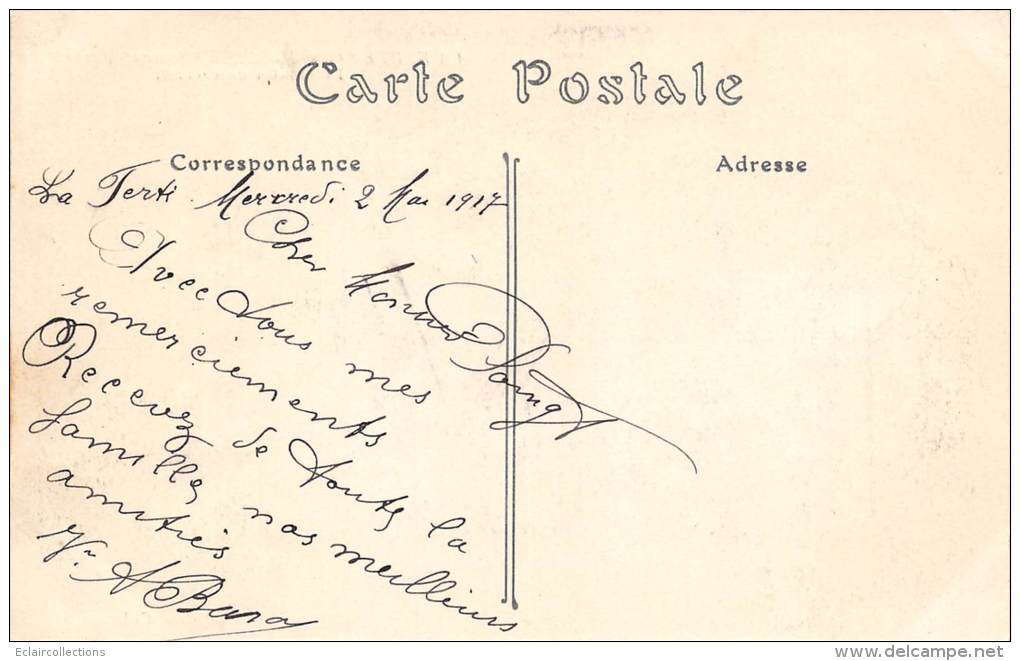 Carte Postale
Correspondance
Adresse
La Ferti Mercredi 2 Mai 1917
Cher
Avec Vous mes
remerciements
Recevez de toute la
famille nos meilleurs
amitiés
A
Eclaircollections
delcampe.net